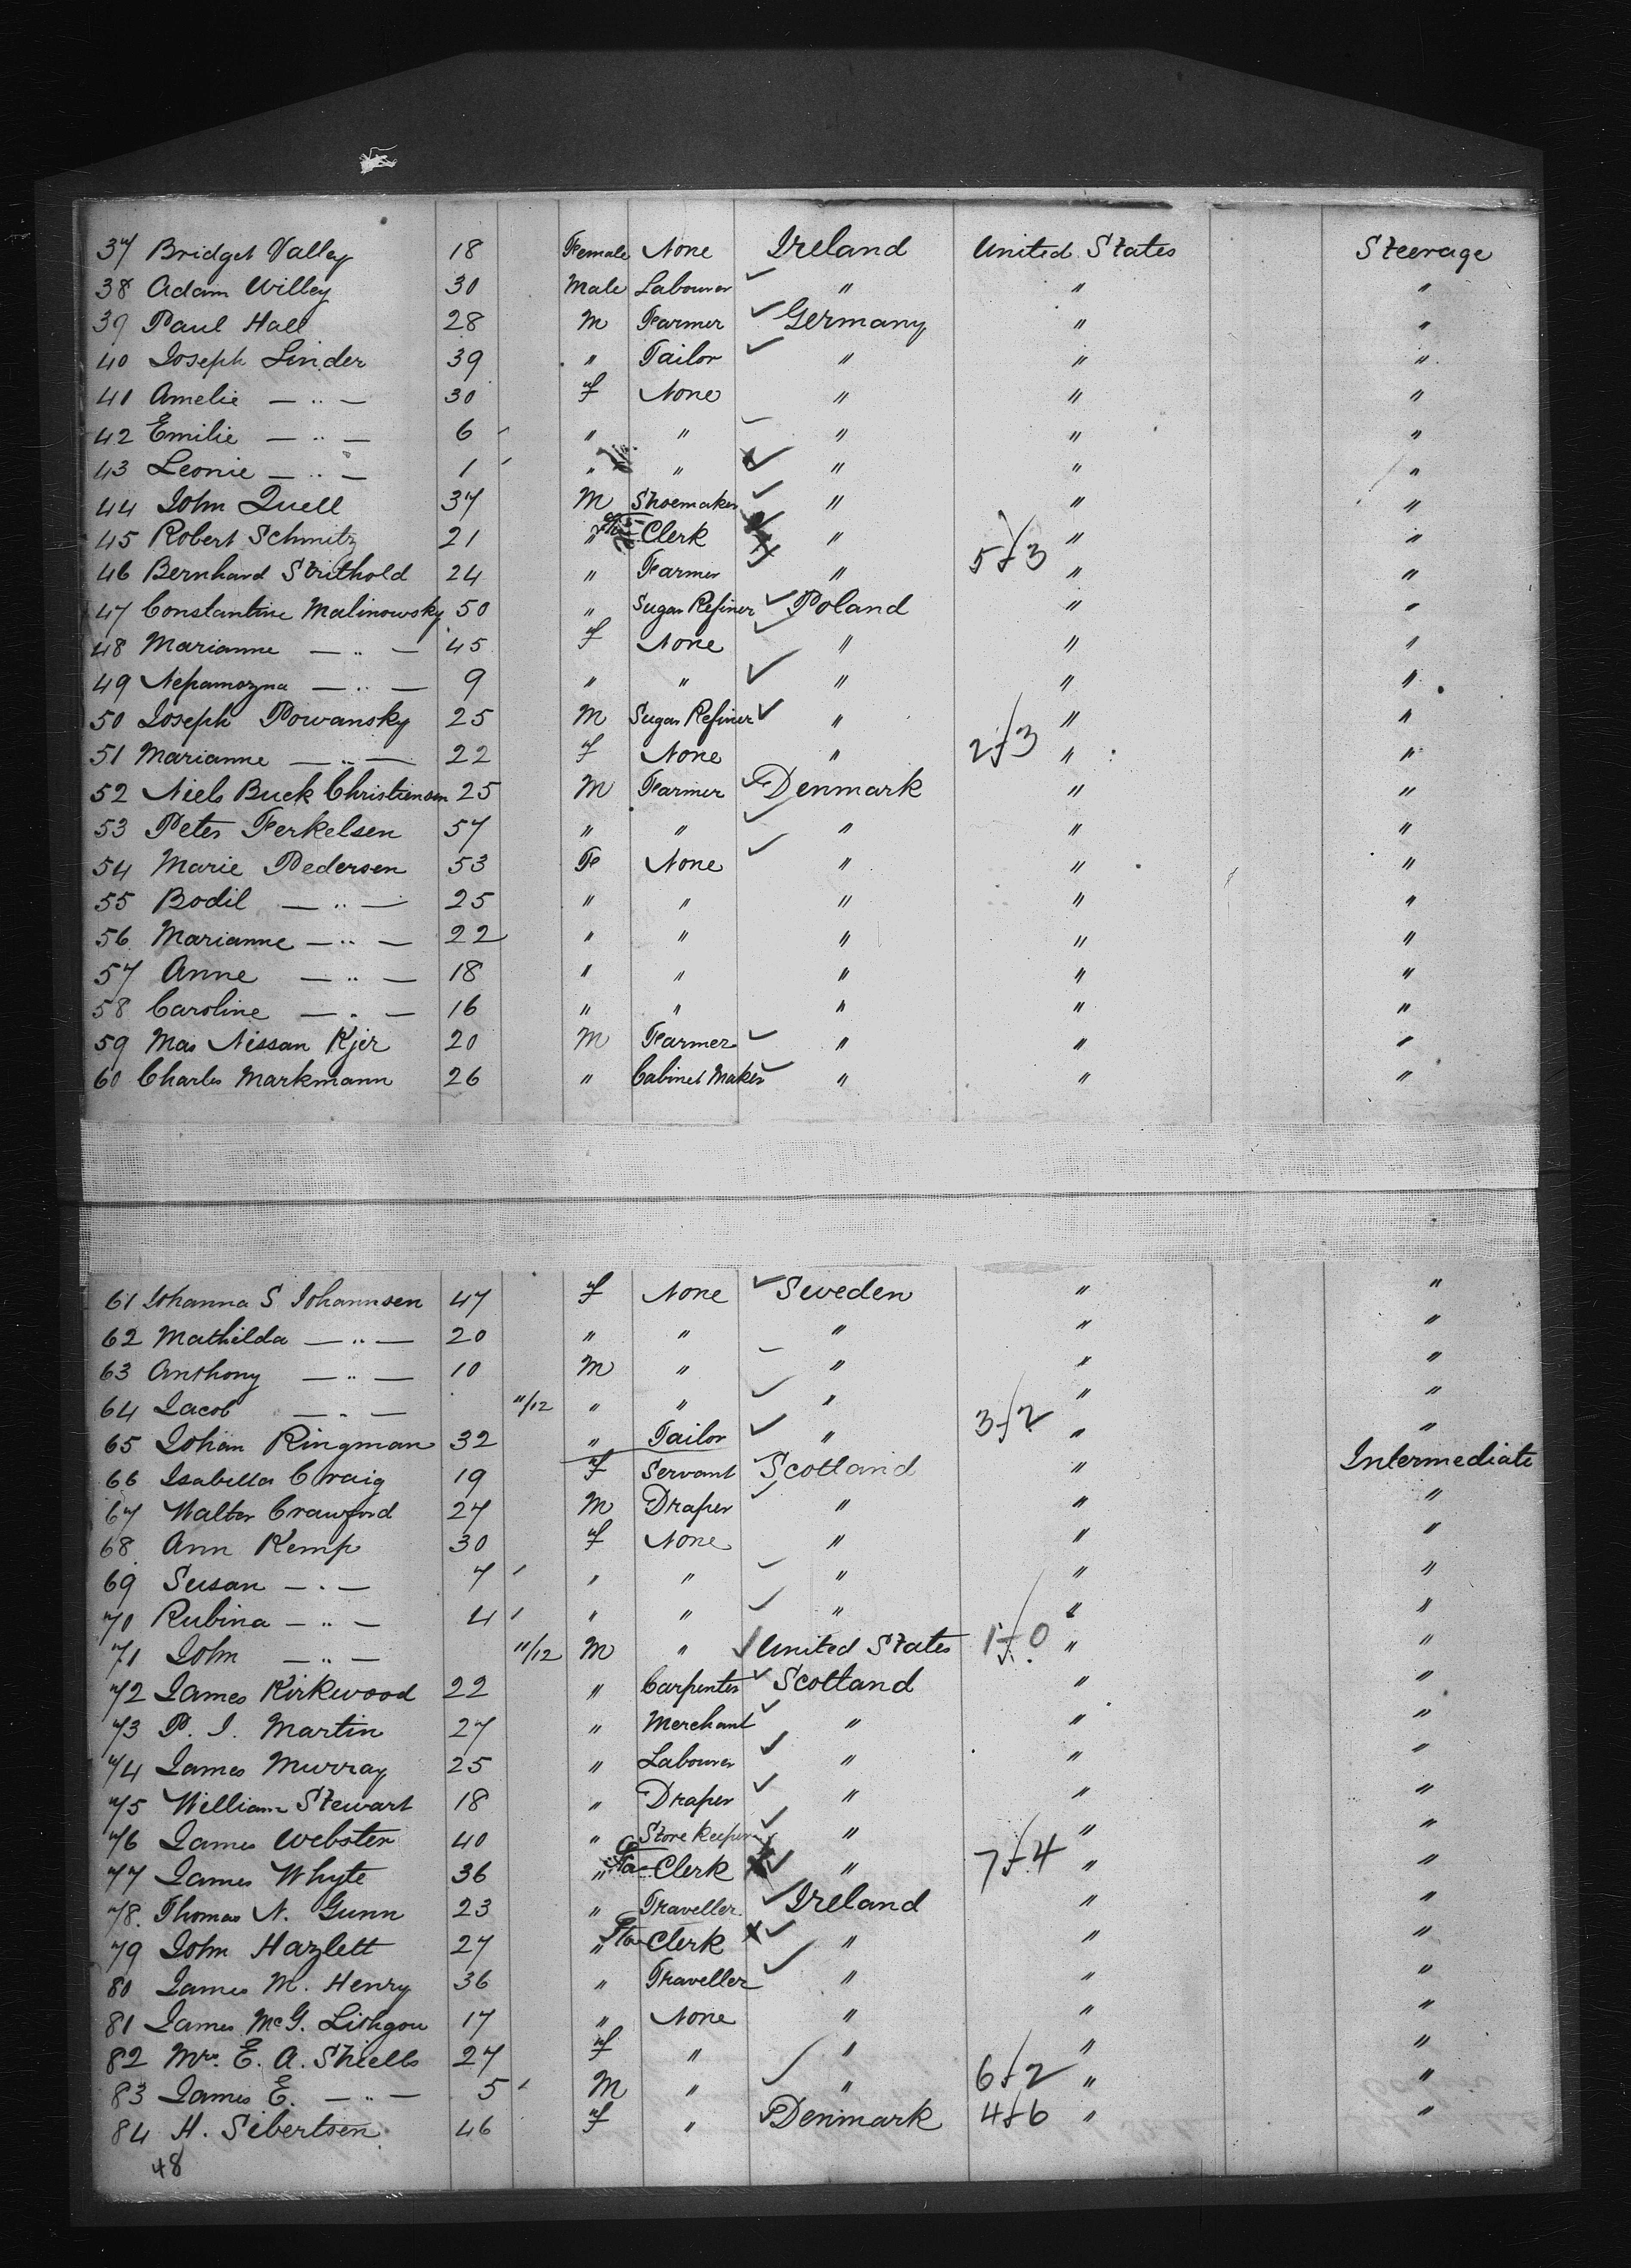 37 Bridget Valley 18 Female None Ireland United States Steerage
38 Adam Willey 30 Male Labourer " " "
39 Paul Hall 28 M Farmer Germany " "
40 Joseph Linder 39 " Tailor " " "
41 Amelie — " — 30 f None " " "
42 Emilie — " — 6 " " " " "
43 Leonie — " — 1 " " " " "
44 John Quell 37 M Shoemaker " " "
45 Robert Schmitz 21 " Clerk " 5 f 3 " "
46 Bernhard Strithold 24 " Farmer " " "
47 Constantine Malinowsky 50 " Sugar Refiner Poland " "
48 Marianne — " — 45 f None " " "
49 Nepamozna — " — 9 " " " " "
50 Joseph Powansky 25 M Sugar Refiner " " "
51 Marianne — " — 22 f None " 2 f 3 " "
52 Niels Buck Christiensen 25 M Farmer Denmark " "
53 Peter Ferkelsen 57 " " " " "
54 Marie Pedersen 53 F None " " "
55 Bodil — " — 25 " " " " "
56 Marianne — " — 22 " " " " "
57 Anne — " — 18 " " " " "
58 Caroline — " — 16 " " " " "
59 Mas Nissan Kjer 20 M Farmer " " "
60 Charles Markmann 26 " Cabinet Maker " " "
61 Johanna S Johannsen 47 f None Sweden " "
62 Mathilda — " — 20 " " " " "
63 Anthony — " — 10 M " " " "
64 Jacob — " — 11/12 " " " " "
65 Johan Ringman 32 " Tailor " 3 f 2 " "
66 Isabella Craig 19 f Servant Scotland " Intermediate
67 Walter Crawford 27 M Draper " " "
68 Ann Kemp 30 f None " " "
69 Susan — " — 7 " " " " "
70 Rubina — " — 4 " " " " "
71 John — " — 11/12 M " United States 1 f 0 " "
72 James Kirkwood 22 " Carpenter Scotland " "
73 P. J. Martin 27 " Merchant " " "
74 James Murray 25 " Labourer " " "
75 William Stewart 18 " Draper " " "
76 James Webster 40 " Store Keeper " " "
77 James Whyte 36 " Clerk " 7 f 4 " "
78. Thomas N. Gunn 23 " Traveller Ireland " "
79 John Hazlett 27 " Clerk " " "
80 James M. Henry 36 " Traveller " " "
81 James McG. Lithgow 17 " None " " "
82 Mrs. E. A. Shiells 27 f " " " "
83 James E. — " — 5 M " " 6 f 2 " "
84 H. Sibertsen 46 f " Denmark 4 f 6 " "
48